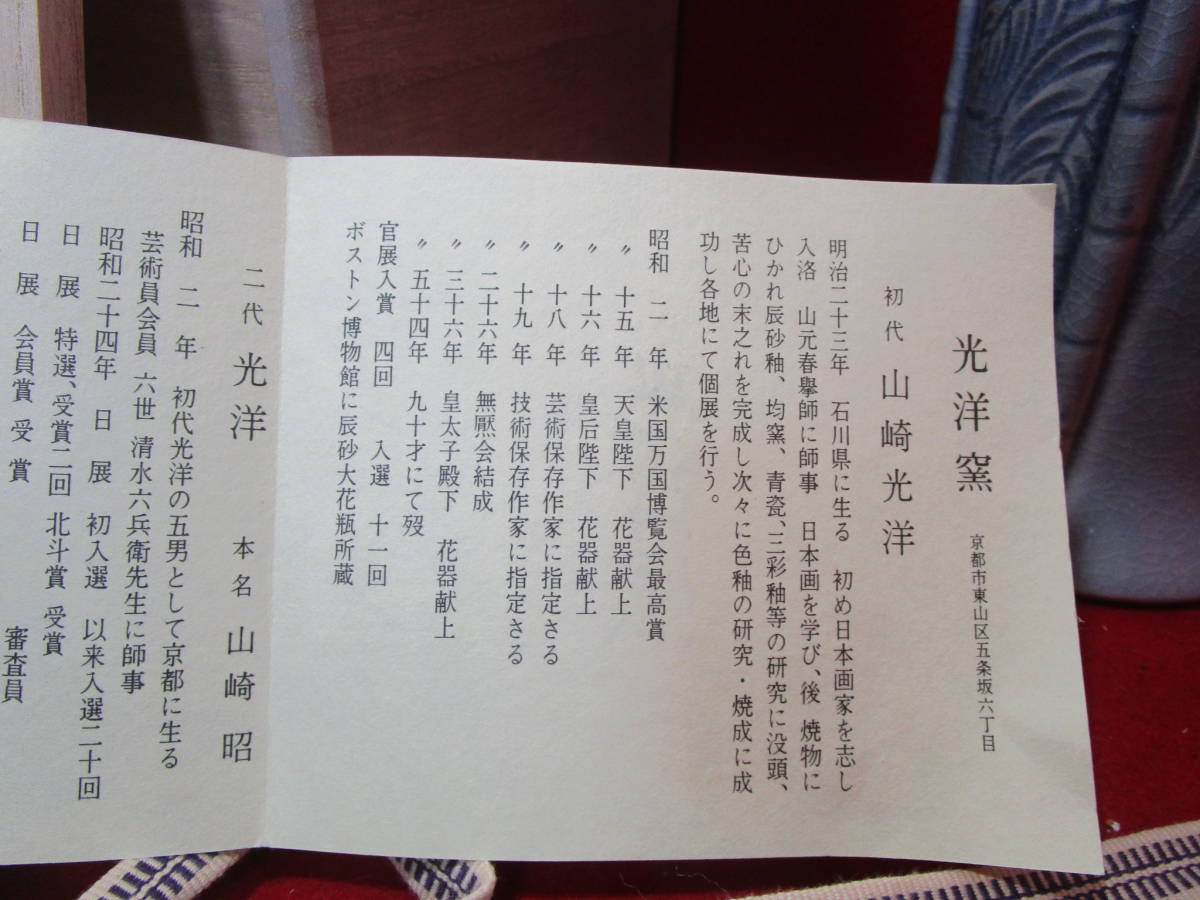 光洋窯 京都市東山区五条坂六丁目
初代 山崎光洋
明治二十三年 石川県に生る 初め日本画家を志し
入洛 山元春擧師に師事 日本画を学び、後 焼物に
ひかれ辰砂釉、均窯、青瓷、三彩釉等の研究に没頭、
苦心の末之れを完成し次々に色釉の研究・焼成に成
功し各地にて個展を行う。
昭和 二 年 米国万国博覧会最高賞
〃 十五 年 天皇陛下 花器献上
〃 十六 年 皇后陛下 花器献上
〃 十八 年 芸術保存作家に指定さる
〃 十九 年 技術保存作家に指定さる
〃 二十六年 無厭会結成
〃 三十六年 皇太子殿下 花器献上
〃 五十四年 九十才にて歿
官展入賞 四回 入選 十一回
ボストン博物館に辰砂大花瓶所蔵
二代 光洋 本名 山崎 昭
昭和 二 年 初代光洋の五男として京都に生る
芸術員会員 六世 清水六兵衛先生に師事
昭和二十四年 日 展 初入選 以来入選二十回
日 展 特選、受賞二回 北斗賞 受賞
日 展 会員賞 受 賞 審査員